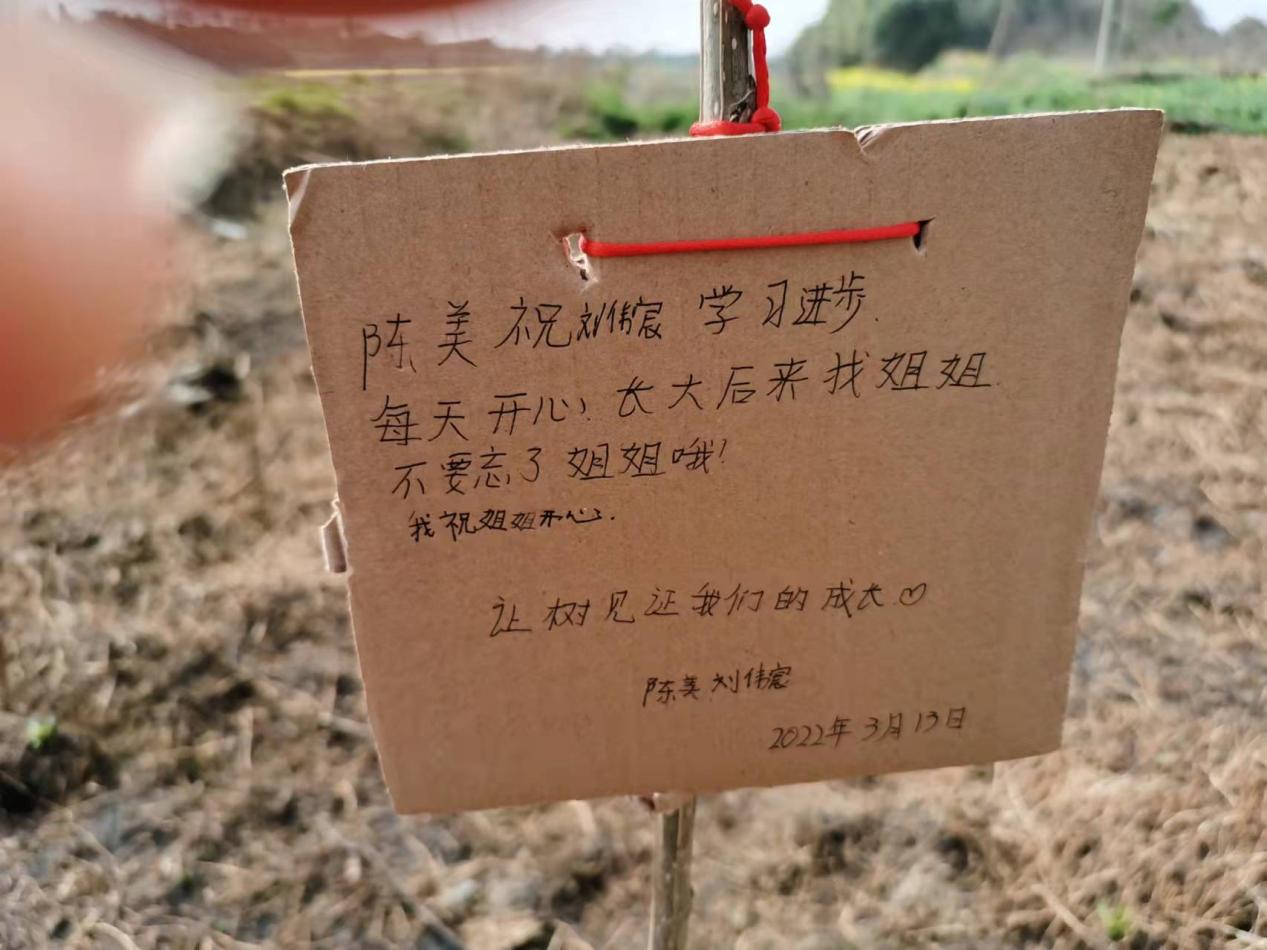 陈美祝刘伟宸学习进步.
每天开心,长大后来找姐姐.
不要忘了姐姐哦!
我祝姐姐开心.
让树见证我们的成长♡
陈美刘伟宸
2022年3月13日